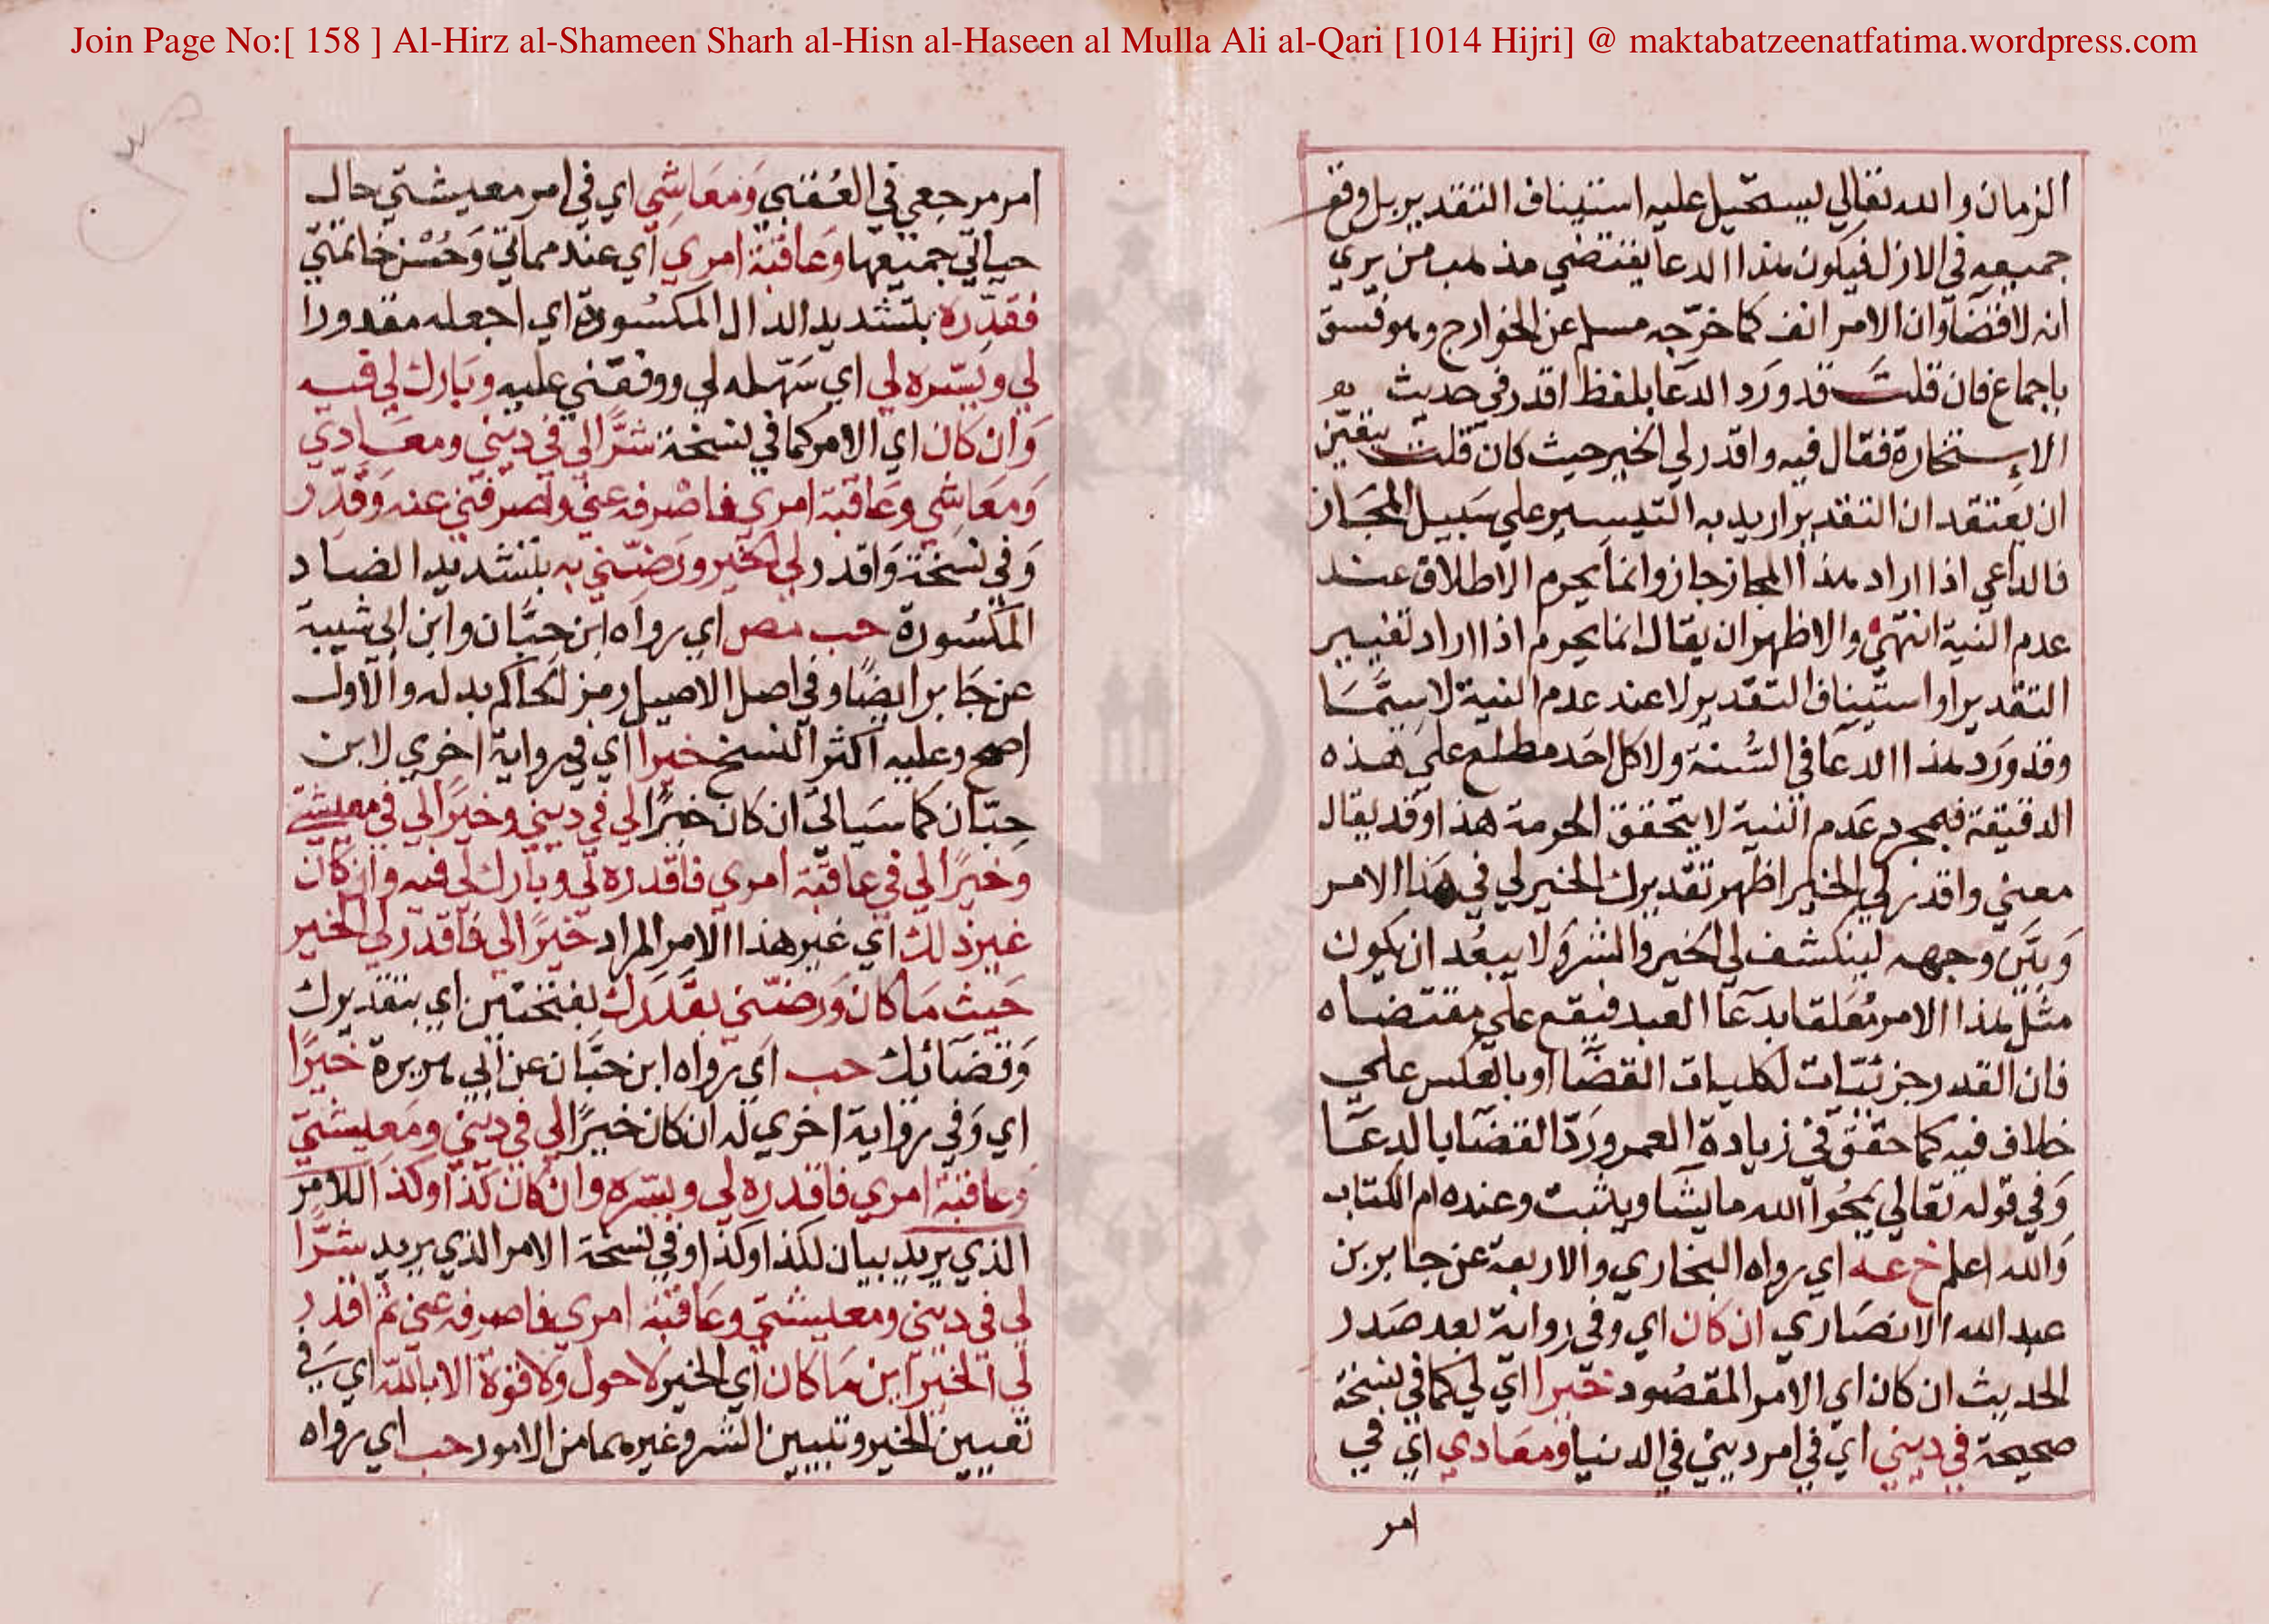 Join Page No:[ 158 ] Al-Hirz al-Shameen Sharh al-Hisn al-Haseen al Mulla Ali al-Qari [1014 Hijri] @ maktabatzeenatfatima.wordpress.com
الزمان والله تعالي يستحيل عليه استيناف التقدير بل وقع
جميعه في الازل فيكون هذا الدعا يقتضي مذهب من يري
انه لا قضآ وان الامر انف كما خرّجه مسلم عن الخوارج وهو فسق
باجماع فان قلت قد ورد الدعا بلفظ اقدر في حديث
الاستخارة فقال فيه واقدر لي الخير حيث كان قلت يتعيّن
ان يعتقد ان التقدير اريد به التيسير علي سبيل المجاز
فالداعي اذا اراد هذا المجاز جاز وانما يحرم الاطلاق عند
عدم النية انتهي والاظهر ان يقال انما يحرم اذا اراد تغيير
التقدير او استيناف التقدير لا عند عدم النية لا سيّما
وقد ورد هذا الدعا في السُّنة ولا كل احد مطلع علي هذه
الدقيقة فبمجرد عدم النية لا يتحقق الحرمة هذا وقد يقال
معني واقدر لي الخير اظهر تقديرك الخير لي في هذا الامر
وبيّن وجهه لينكشف لي الخير والشر ولا يبعُد ان يكون
مثل هذا الامر مُعلقا بدعآ العبد فيقع علي مقتضاه
فان القدر جزئيّات لكليات القضآ او بالعكس علي
خلاف فيه كما حقق في زيادة العمر وردّ القضآ بالدعا
وفي قوله تعالي يمحُوا الله ما يشا ويثبت وعنده ام الكتاب
والله اعلم خ عه اي رواه البخاري والاربعة عن جابر بن
عبد الله الانصاري ان كان اي وفي رواية بعد صدر
الحديث ان كان اي الامر المقصُود خيرا اي لي كما في نسخة
صحيحة في ديني اي في امر ديني في الدنيا ومعادي اي في
امر
امر مرجعي في العُقبي ومعاشِي اي في امر معيشتي حال
حياتي جميعها وعاقبة امري اي عند مماتي وحُسْن خاتمتي
فقدّره بتشديد الدال المكسُورة اي اجعله مقدورا
لي ويسّره لي اي سَهّله لي ووفقني عليه وبارك لي فيه
وان كان اي الامر كما في نسخة شرًّا لي في ديني ومعادي
ومعاشي وعاقبة امري فاصْرفه عني واصرفني عنه وقدّر
وفي نسخة واقدر لي الخير ورضّني به بتشديد الضاد
المكسُورة حب مص اي رواه ابن حبَّان وابن ابي شيبة
عن جابر ايضًا وفي اصل الاصيل رمز الحاكم بدله والاول
اصح وعليه اكثر النسخ خيرا اي في رواية اخري لابن
حبّان كما سياتي ان كان خيرًا لي في ديني وخيرًا لي في معيشتي
وخيرًا لي في عاقبة امري فاقدره لي وبارك لي فيه وان كان
غير ذلك اي غير هذا الامر المراد خيرًا لي فاقدر لي الخير
حيث ما كان ورضّني بقدَرك بفتحتين اي بتقديرك
وقضآئك حب اي رواه ابن حبَّان عن ابي هريرة خيرًا
اي وفي رواية اخري له ان كان خيرًا لي في ديني ومعيشتي
وعاقبة امري فاقدره لي ويسّره وان كان كذا وكذا اللامر
الذي يريد بيان لكذا وكذا وفي نسخة الامر الذي يريد شرًّا
لي في ديني ومعيشتي وعاقبة امري فاصرفه عني ثم اقدر
لي الخير اين ما كان اي الخير لا حول ولا قوة الا بالله اي في
تعيين الخير وتبيين الشر وغيرهما من الامور حب اي رواه